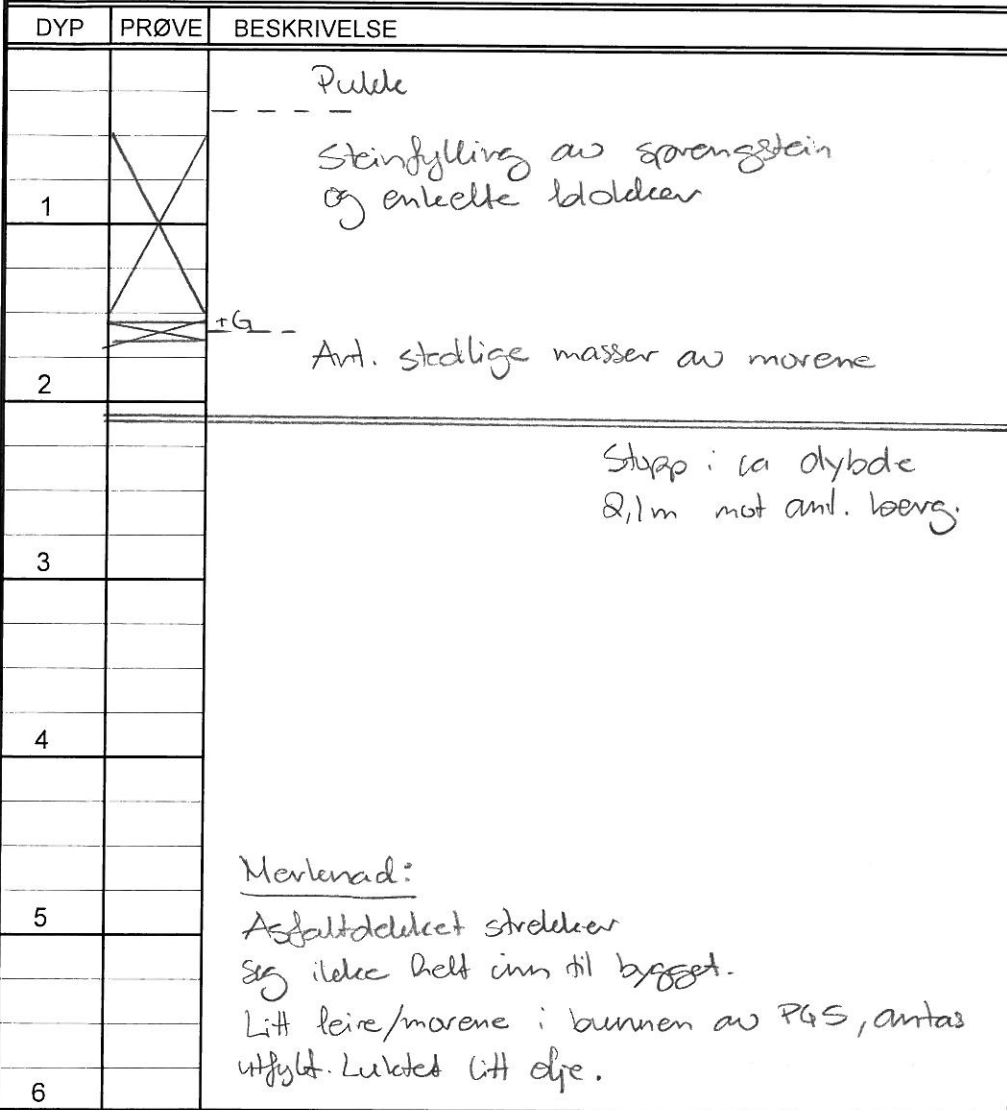 DYP PRØVE BESKRIVELSE
Pukk
Steinfylling av sprengstein
og enkelte blokker
1
+G
Ant. stedlige masser av morene
2
Stopp i ca dybde
2,1m mot ant. berg.
3
4
Merknad:
5
Asfaltdekket strekker
seg ikke helt inn til bygget.
Litt leire/morene i bunnen av PG5, antas
utfylt. Luktet litt olje.
6